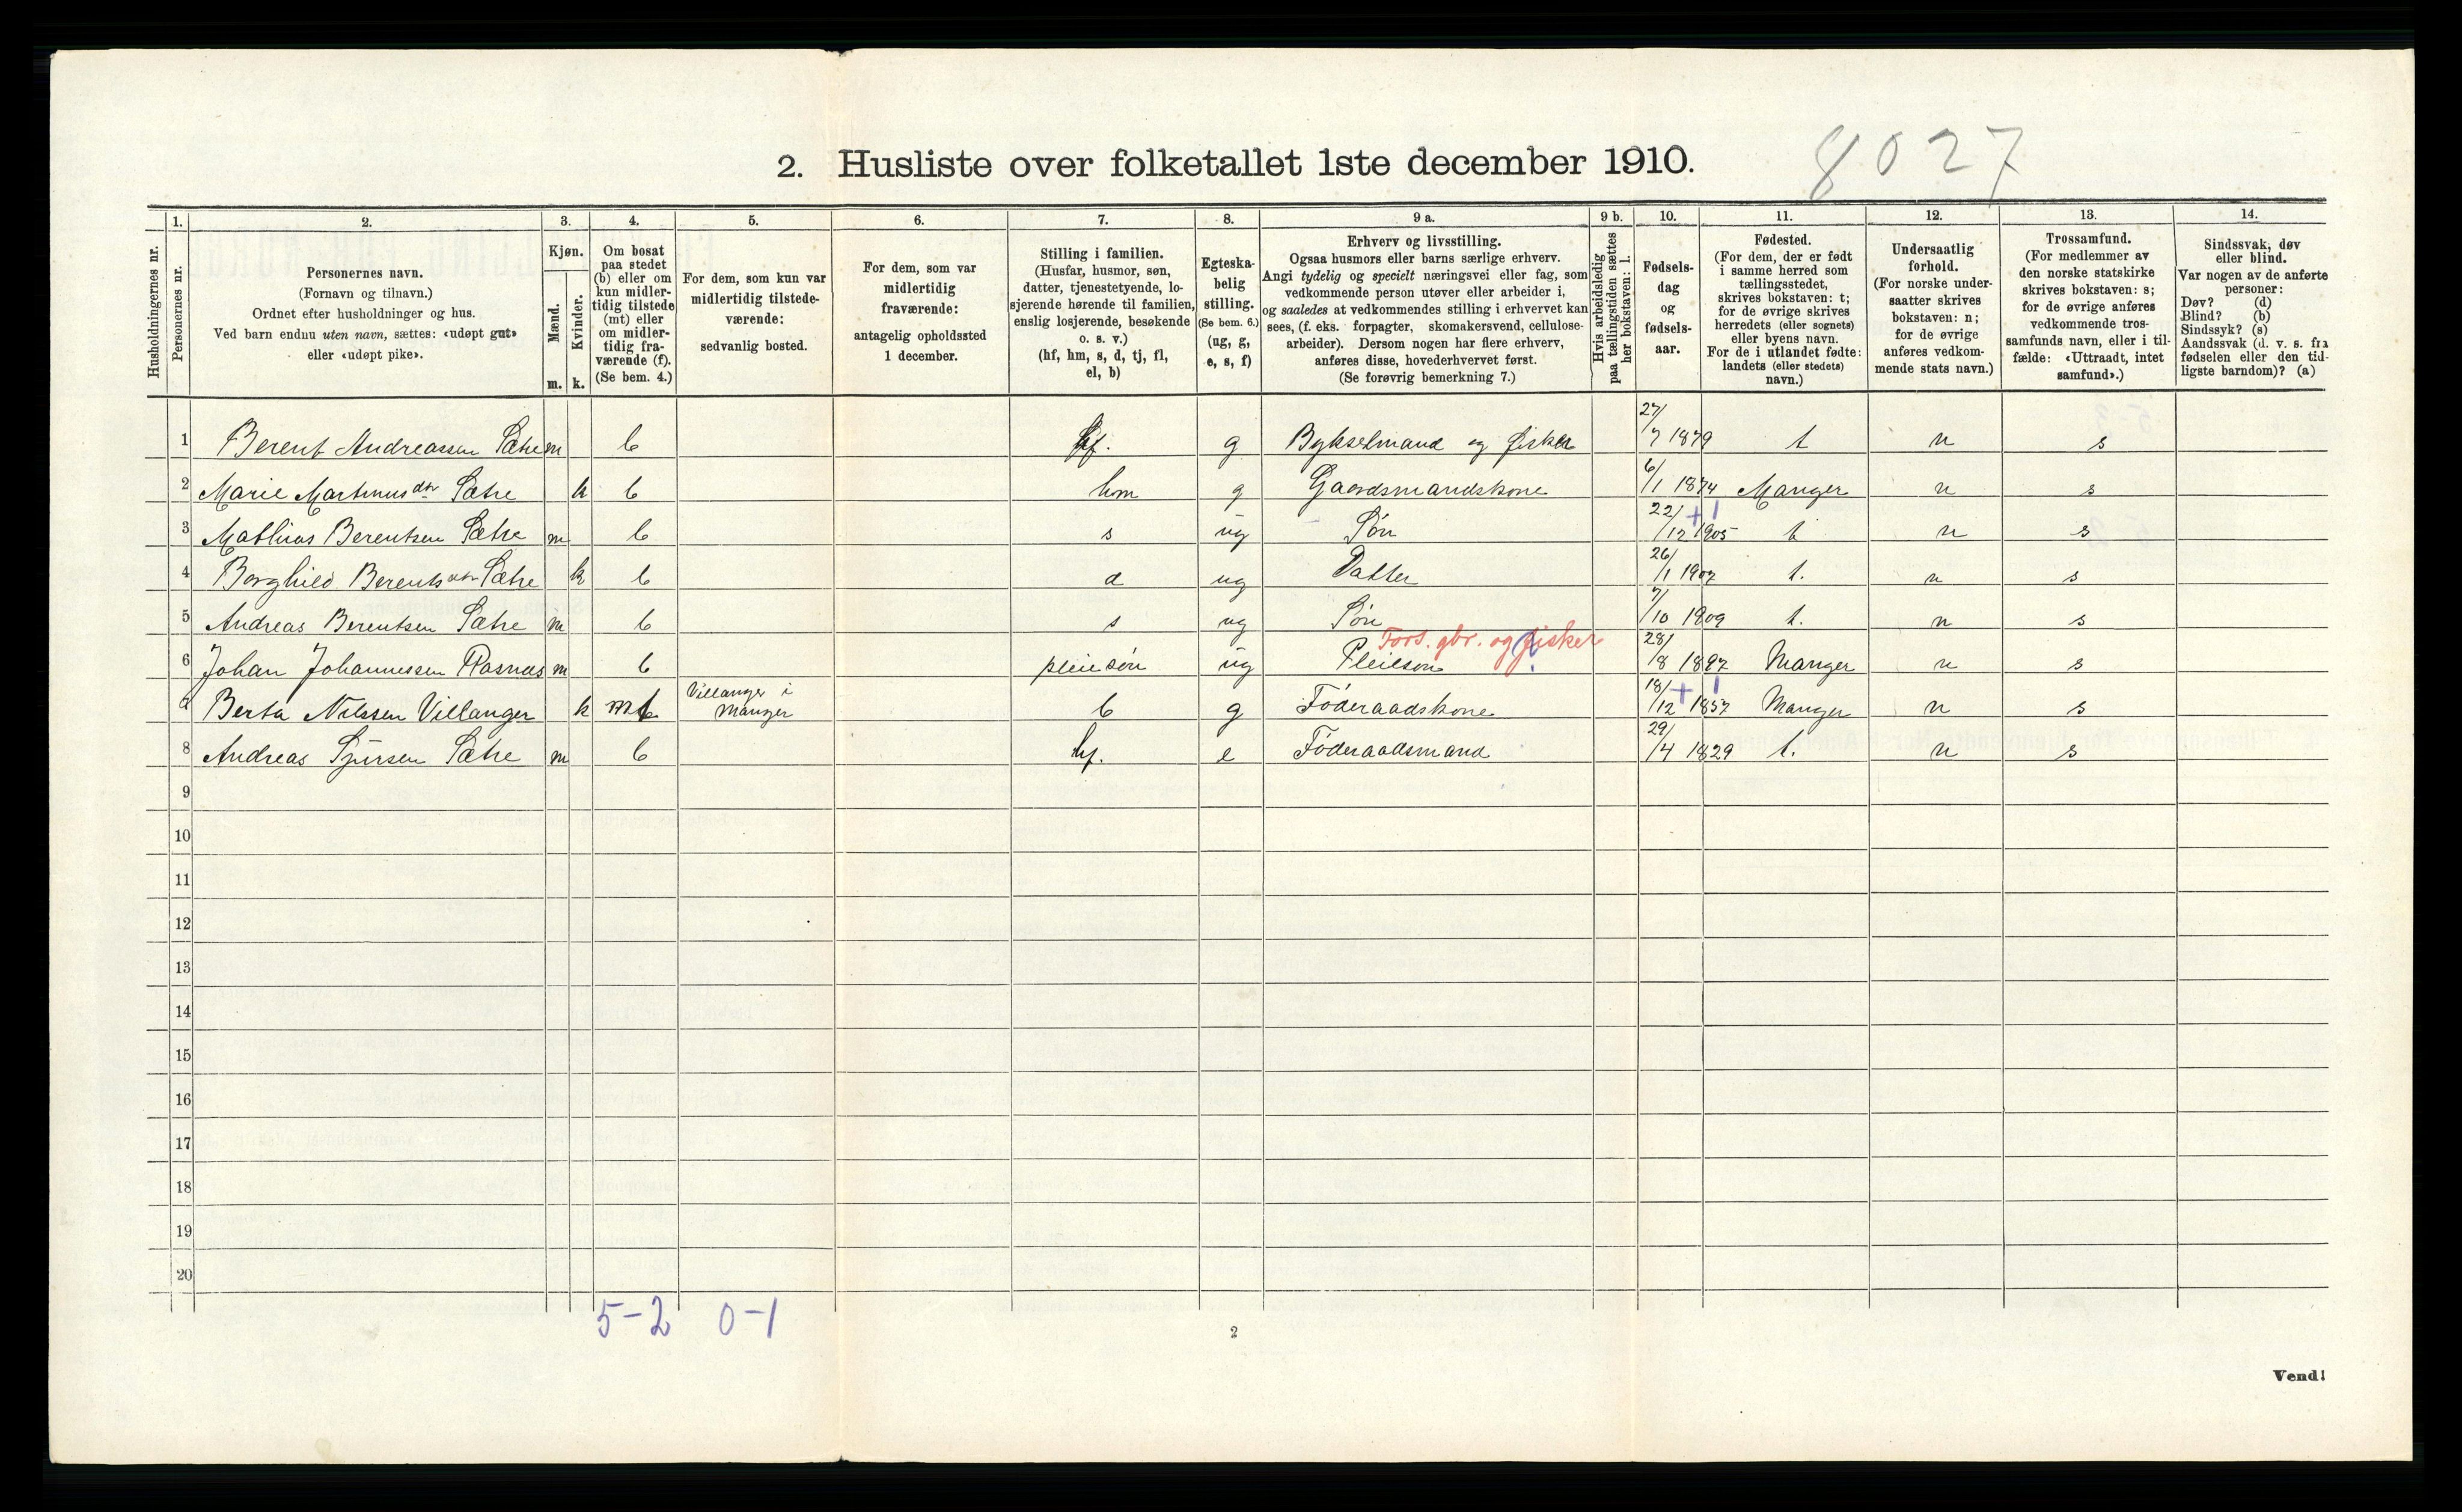 8027
2. Husliste over folketallet 1ste december 1910.
Husholdningernes nr.
1. Personernes nr.
2. Personernes navn.
(Fornavn og tilnavn.)
Ordnet efter husholdninger og hus.
Ved barn endnu uten navn, sættes: «udøpt gut»
eller «udøpt pike».
3. Kjøn.
Mænd. m.
Kvinder. k.
4. Om bosat
paa stedet
(b) eller om
kun midler-
tidig tilstede
(mt) eller
om midler-
tidig fra-
værende (f).
(Se bem. 4.)
5. For dem, som kun var
midlertidig tilstede-
værende:
sedvanlig bosted.
6. For dem, som var
midlertidig
fraværende:
antagelig opholdssted
1 december.
7. Stilling i familien.
(Husfar, husmor, søn,
datter, tjenestetyende, lo-
sjerende hørende til familien,
enslig losjerende, besøkende
o. s. v.)
(hf, hm, s, d, tj, fl,
el, b)
8. Egteska-
belig
stilling.
(Se bem. 6.)
(ug, g,
e, s, f)
9 a. Erhverv og livsstilling.
Ogsaa husmors eller barns særlige erhverv.
Angi tydelig og specielt næringsvei eller fag, som
vedkommende person utøver eller arbeider i,
og saaledes at vedkommendes stilling i erhvervet kan
sees, (f. eks. forpagter, skomakersvend, cellulose-
arbeider). Dersom nogen har flere erhverv,
anføres disse, hovederhvervet først.
(Se forøvrig bemerkning 7.)
9 b. Hvis arbeidsledig
paa tællingstiden sættes
her bokstaven: l.
10. Fødsels-
dag
og
fødsels-
aar.
11. Fødested.
(For dem, der er født
i samme herred som
tællingsstedet,
skrives bokstaven: t;
for de øvrige skrives
herredets (eller sognets)
eller byens navn.
For de i utlandet fødte:
landets (eller stedets)
navn.)
12. Undersaatlig
forhold.
(For norske under-
saatter skrives
bokstaven: n;
for de øvrige
anføres vedkom-
mende stats navn.)
13. Trossamfund.
(For medlemmer av
den norske statskirke
skrives bokstaven: s;
for de øvrige anføres
vedkommende tros-
samfunds navn, eller i til-
fælde: «Uttraadt, intet
samfund».)
14. Sindssvak, døv
eller blind.
Var nogen av de anførte
personer:
Døv? (d)
Blind? (b)
Sindssyk? (s)
Aandssvak (d. v. s. fra
fødselen eller den tid-
ligste barndom)? (a)
1 Berent Andreassen Sætre m b hf. g Bykselmand og fisker 27/7 1879 t n s
2 Marie Martinusdtr Sætre k b hm g Gaardsmandskone 6/1 1874 Manger n s
3 Mathias Berentsen Sætre m b s ug Søn 22/12 1905 t n s
4 Borghild Berentsdtr Sætre k b d ug Datter 26/1 1907 t. n s
5 Andreas Berentsen Sætre m b s ug Søn 7/10 1909 t. n s
Fors. gbr. og fisker
6 Johan Johannessen Rosnæs m b pleiesøn ug Pleiesøn 28/8 1897 Manger n s
Villanger i
Berta Nilssen Villanger k mt Manger b g Føderaadskone 18/12 1857 Manger n s
8 Andreas Sjursen Sætre m b hf. e Føderaadsmand 29/4 1829 t. n s
9
10
11
12
13
14
15
16
17
18
19
20
5-2 0-1
2
Vend!